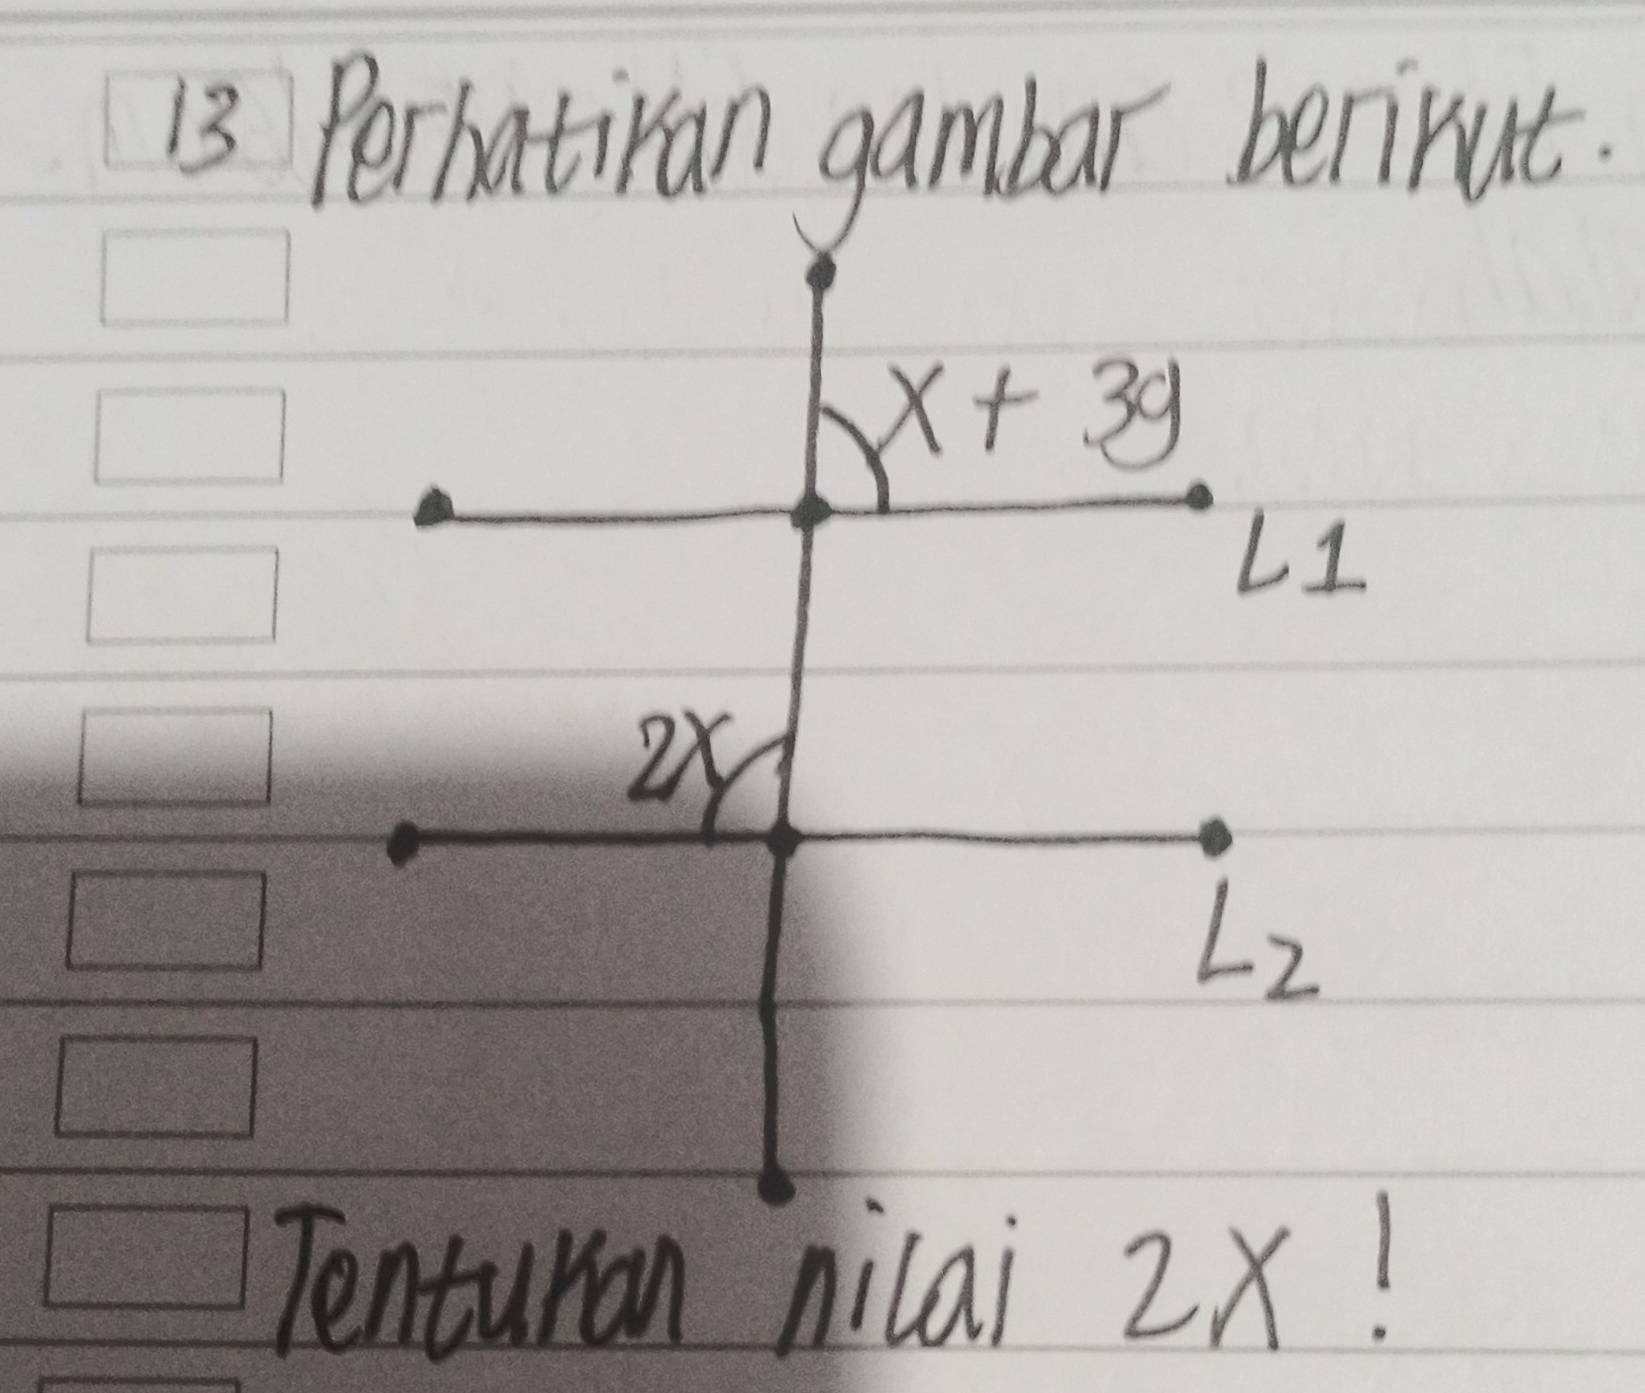 13 Perhatikan gambar berikut.
x + 39
L1
2x
L2
Tentukan nilai 2x!